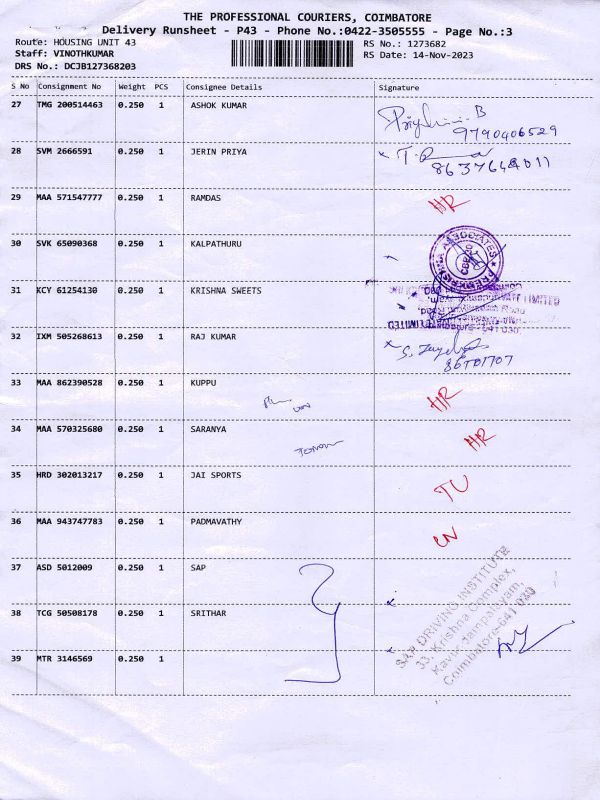 THE PROFESSIONAL COURIERS, COIMBATORE
Delivery Runsheet - P43 - Phone No.:0422-3505555 - Page No.:3
Route: HOUSING UNIT 43
RS No.: 1273682
Staff: VINOTHKUMAR
RS Date: 14-Nov-2023
DRS No.: DCJB127368203
S No Consignment No Weight PCS Consignee Details Signature
27 TMG 200514463 0.250 1 ASHOK KUMAR
9790406529
28 SVM 2666591 0.250 1 JERIN PRIYA
29 MAA 571547777 0.250 1 RAMDAS HR
30 SVK 65090368 0.250 1 KALPATHURU
ASSOCIATES
31 KCY 61254130 0.250 1 KRISHNA SWEETS
LIMITED
32 IXM 505268613 0.250 1 RAJ KUMAR
33 MAA 862390528 0.250 1 KUPPU HR
34 MAA 570325680 0.250 1 SARANYA HR
35 HRD 302013217 0.250 1 JAI SPORTS TU
36 MAA 943747783 0.250 1 PADMAVATHY
37 ASD 5012009 0.250 1 SAP
38 TCG 50508178 0.250 1 SRITHAR
39 MTR 3146569 0.250 1
SAP DRIVING INSTITUTE
33, Krishna Complex,
Coimbatore-641 030